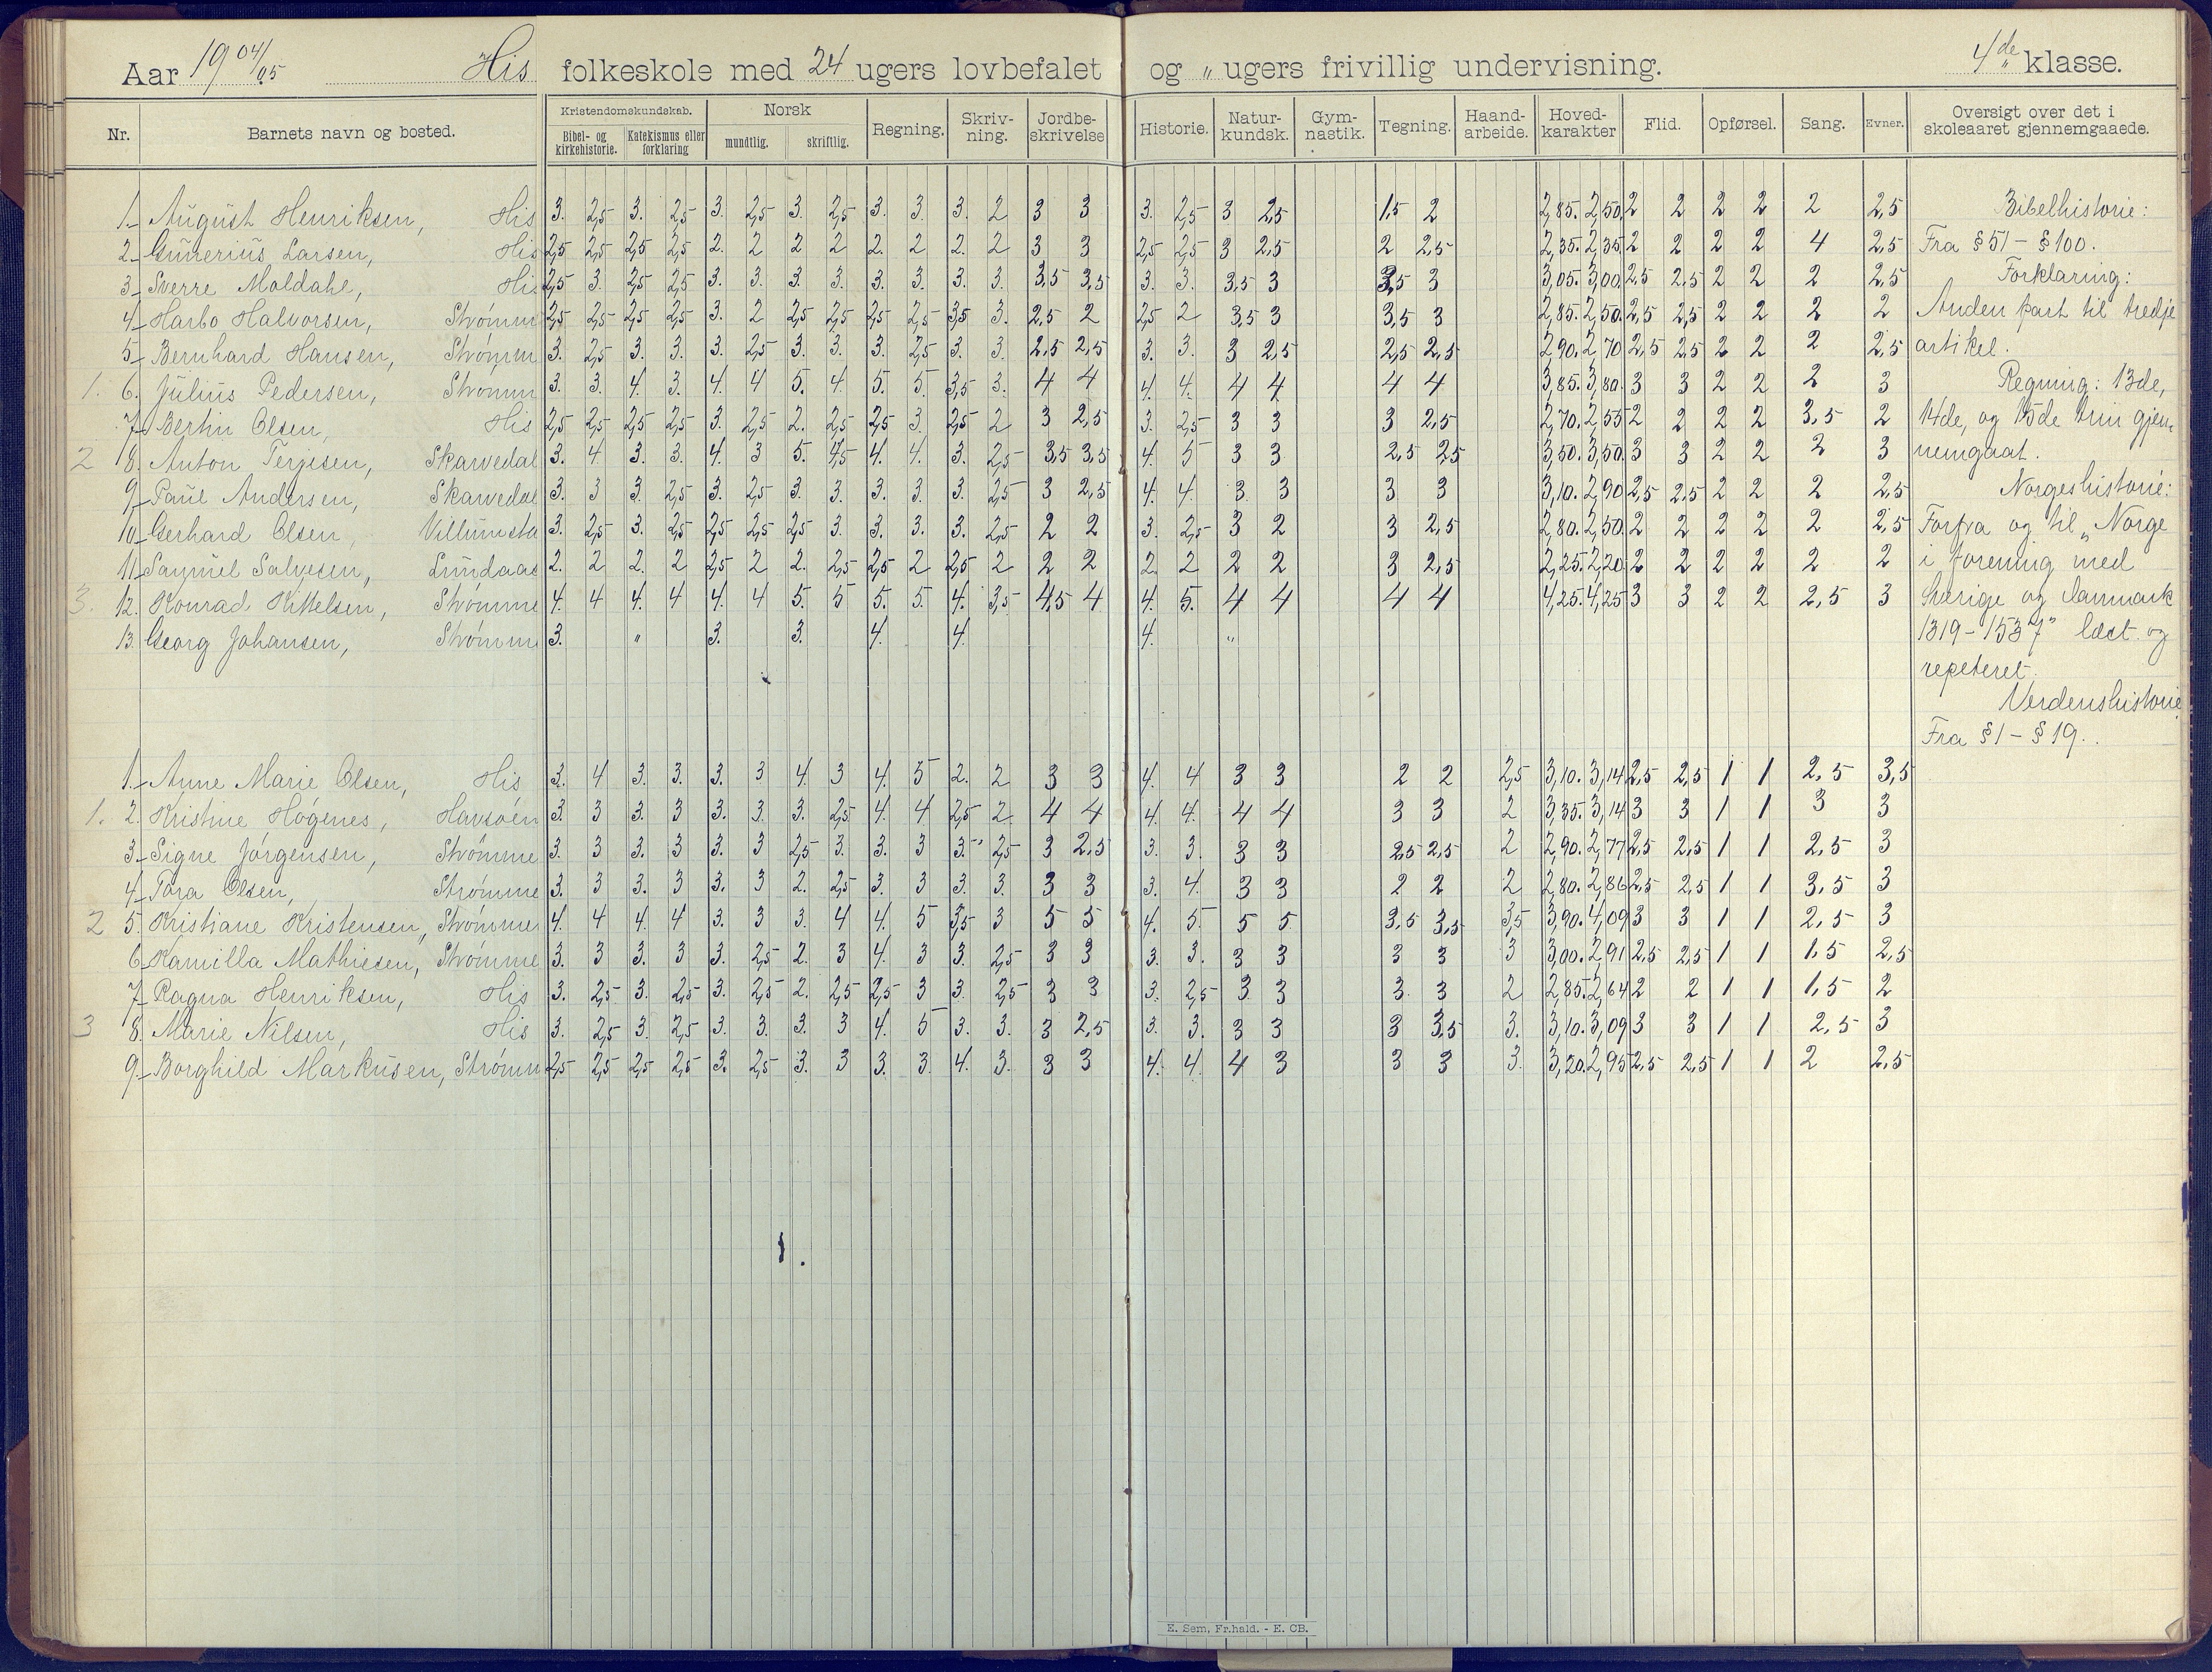 Aar 1904/05 His folkeskole med 24 ugers lovbefalet og „ ugers frivillig undervisning. 4de klasse.
Nr. Barnets navn og bosted. Kristendomskundskab. Bibel- og kirkehistorie. Katekismus eller forklaring Norsk mundtlig. skriftlig. Regning. Skriv-ning. Jordbe-skrivelse Historie. Natur-kundsk. Gym-nastik. Tegning. Haand-arbeide. Hoved-karakter Flid. Opførsel. Sang. Evner. Oversigt over det i skoleaaret gjennemgaaede.
1. August Henriksen, His 3. 2,5 3. 2,5 3. 2,5 3. 2,5 3. 3. 3. 2 3 3 3. 2,5 3 2,5 1,5 2 2,85. 2,50. 2 2 2 2 2 2,5 Bibelhistorie:
2. Gunerius Larsen, His 2,5 2,5 2,5 2,5 2. 2 2 2 2. 2 2. 2 3 3 2,5 2,5 3 2,5 2 2,5 2,35. 2,35. 2 2 2 2 4 2,5 Fra § 51 - § 100.
3. Sverre Moldahl, His 2,5 3. 2,5 2,5 3. 3. 3. 3. 3. 3. 3. 3. 3,5 3,5 3. 3. 3,5 3 3,5 3 3,05. 3,00. 2,5 2,5 2 2 2 2,5 Forklaring:
4. Harbo Halvorsen, Strømm 2,5 2,5 2,5 2,5 3. 2 2,5 2,5 2,5 2,5 3,5 3. 2,5 2 2,5 2 3,5 3 3,5 3 2,85. 2,50. 2,5 2,5 2 2 2 2 Anden part til tredje
5. Bernhard Hansen, Strømm 3. 2,5 3. 3. 3. 2,5 3. 3. 3. 2,5 3. 3. 2,5 2,5 3. 3. 3 2,5 2,5 2,5 2,90. 2,70 2,5 2,5 2 2 2 2,5 artikel.
1. 6. Julius Pedersen, Strømm 3. 3. 4. 3. 4. 4 5. 4. 5. 5 3,5 3. 4 4 4. 4. 4 4 4 4 3,85. 3,80. 3 3 2 2 2 3 Regning: 13de,
7. Bertin Olsen, His 2,5 2,5 2,5 2,5 3. 2,5 2. 2,5 2,5 3. 2,5 2 3 2,5 3. 2,5 3 3 3 2,5 2,70. 2,55 2 2 2 2 3,5 2 14de, og 15de trin gjen-
2 8. Anton Terjesen, Skarvedal 3. 4 3. 3. 4. 3 5. 4,5 4. 4. 3. 2,5 3,5 3,5 4. 5 3 3 2,5 2,5 3,50. 3,50. 3 3 2 2 2 3 nemgaat.
9. Paul Andersen, Skarvedal 3. 3 3. 2,5 3. 2,5 3. 3. 3. 3. 3. 2,5 3 2,5 4. 4. 3 3 3 3 3,10. 2,90 2,5 2,5 2 2 2 2,5 Norgeshistorie:
10. Gerhard Olsen, Villumsta 3. 2,5 3. 2,5 2,5 2,5 2,5 3. 3. 3. 3. 2,5 2 2 3. 2,5 3 2 3 2,5 2,80. 2,50. 2 2 2 2 2 2,5 Forfra og til „Norge
11. Samuel Salvesen, Lundaas 2. 2 2. 2 2,5 2 2. 2,5 2,5 2 2,5 2 2 2 2. 2 2 2 3 2,5 2,25. 2,20. 2 2 2 2 2 2 i forening med
3. 12. Konrad Kittelsen, Strømme 4. 4 4. 4 4. 4 5. 5 5. 5. 4. 3,5 4,5 4 4. 5. 4 4 4 4 4,25. 4,25 3 3 2 2 2,5 3 Sverige og Danmark
13. Georg Johansen, Strømm 3. „ 3. 3. 4. 4. 4. „ 1319-1537“ læst og
repeteret.
Verdenshistorie
Fra § 1 - § 19.
1. Anne Marie Olsen, His 3. 4 3. 3. 3. 3 4. 3 4. 5 2. 2 3 3 4. 4 3 3 2 2 2,5 3,10. 3,14 2,5 2,5 1 1 2,5 3,5
1. 2. Kristine Høgenes, Havsøen 3. 3 3. 3 3. 3. 3. 2,5 4. 4 2,5 2 4 4 4. 4. 4 4 3 3 2 3,35. 3,14 3 3 1 1 3 3
3. Signe Jørgensen, Strømme 3. 3 3. 3 3. 3 2,5 3. 3. 3 3. 2,5 3 2,5 3. 3. 3 3 2,5 2,5 2 2,90. 2,77 2,5 2,5 1 1 2,5 3
4. Tora Olsen, Strømme 3. 3 3. 3 3. 3 2. 2,5 3. 3 3. 3. 3 3 3. 4. 3 3 2 2 2 2,80. 2,86 2,5 2,5 1 1 3,5 3
2 5. Kristiane Kristensen, Strømme 4. 4 4. 4 3. 3 3. 4 4. 5 3,5 3 5 5 4. 5 5 5 3,5 3,5 3,5 3,90. 4,09 3 3 1 1 2,5 3
6. Kamilla Mathiesen, Strømme 3. 3 3. 3 3. 2,5 2. 3 4. 3 3. 2,5 3 3 3. 3. 3 3 3 3 3 3,00. 2,91 2,5 2,5 1 1 1,5 2,5
7. Ragna Henriksen, His 3. 2,5 3. 2,5 3. 2,5 2. 2,5 2,5 3 3. 2,5 3 3 3. 2,5 3. 3 3. 3 2 2,85. 2,64 2 2 1 1 1,5 2
3 8. Marie Nilsen, His 3. 2,5 3. 2,5 3. 3. 3. 3 4. 5 3. 3. 3 2,5 3. 3. 3 3 3 3,5 3. 3,10. 3,09 3 3 1 1 2,5 3
9. Borghild Markusen, Strømm 2,5 2,5 2,5 2,5 3. 2,5 3. 3 3. 3. 4. 3. 3 3 4. 4. 4 3 3 3 3. 3,20. 2,95 2,5 2,5 1 1 2 2,5
E. Sem, Fr.hald. - E. CB.